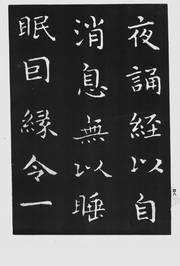 夜誦經以自
消息無以睡
眠因縁令一